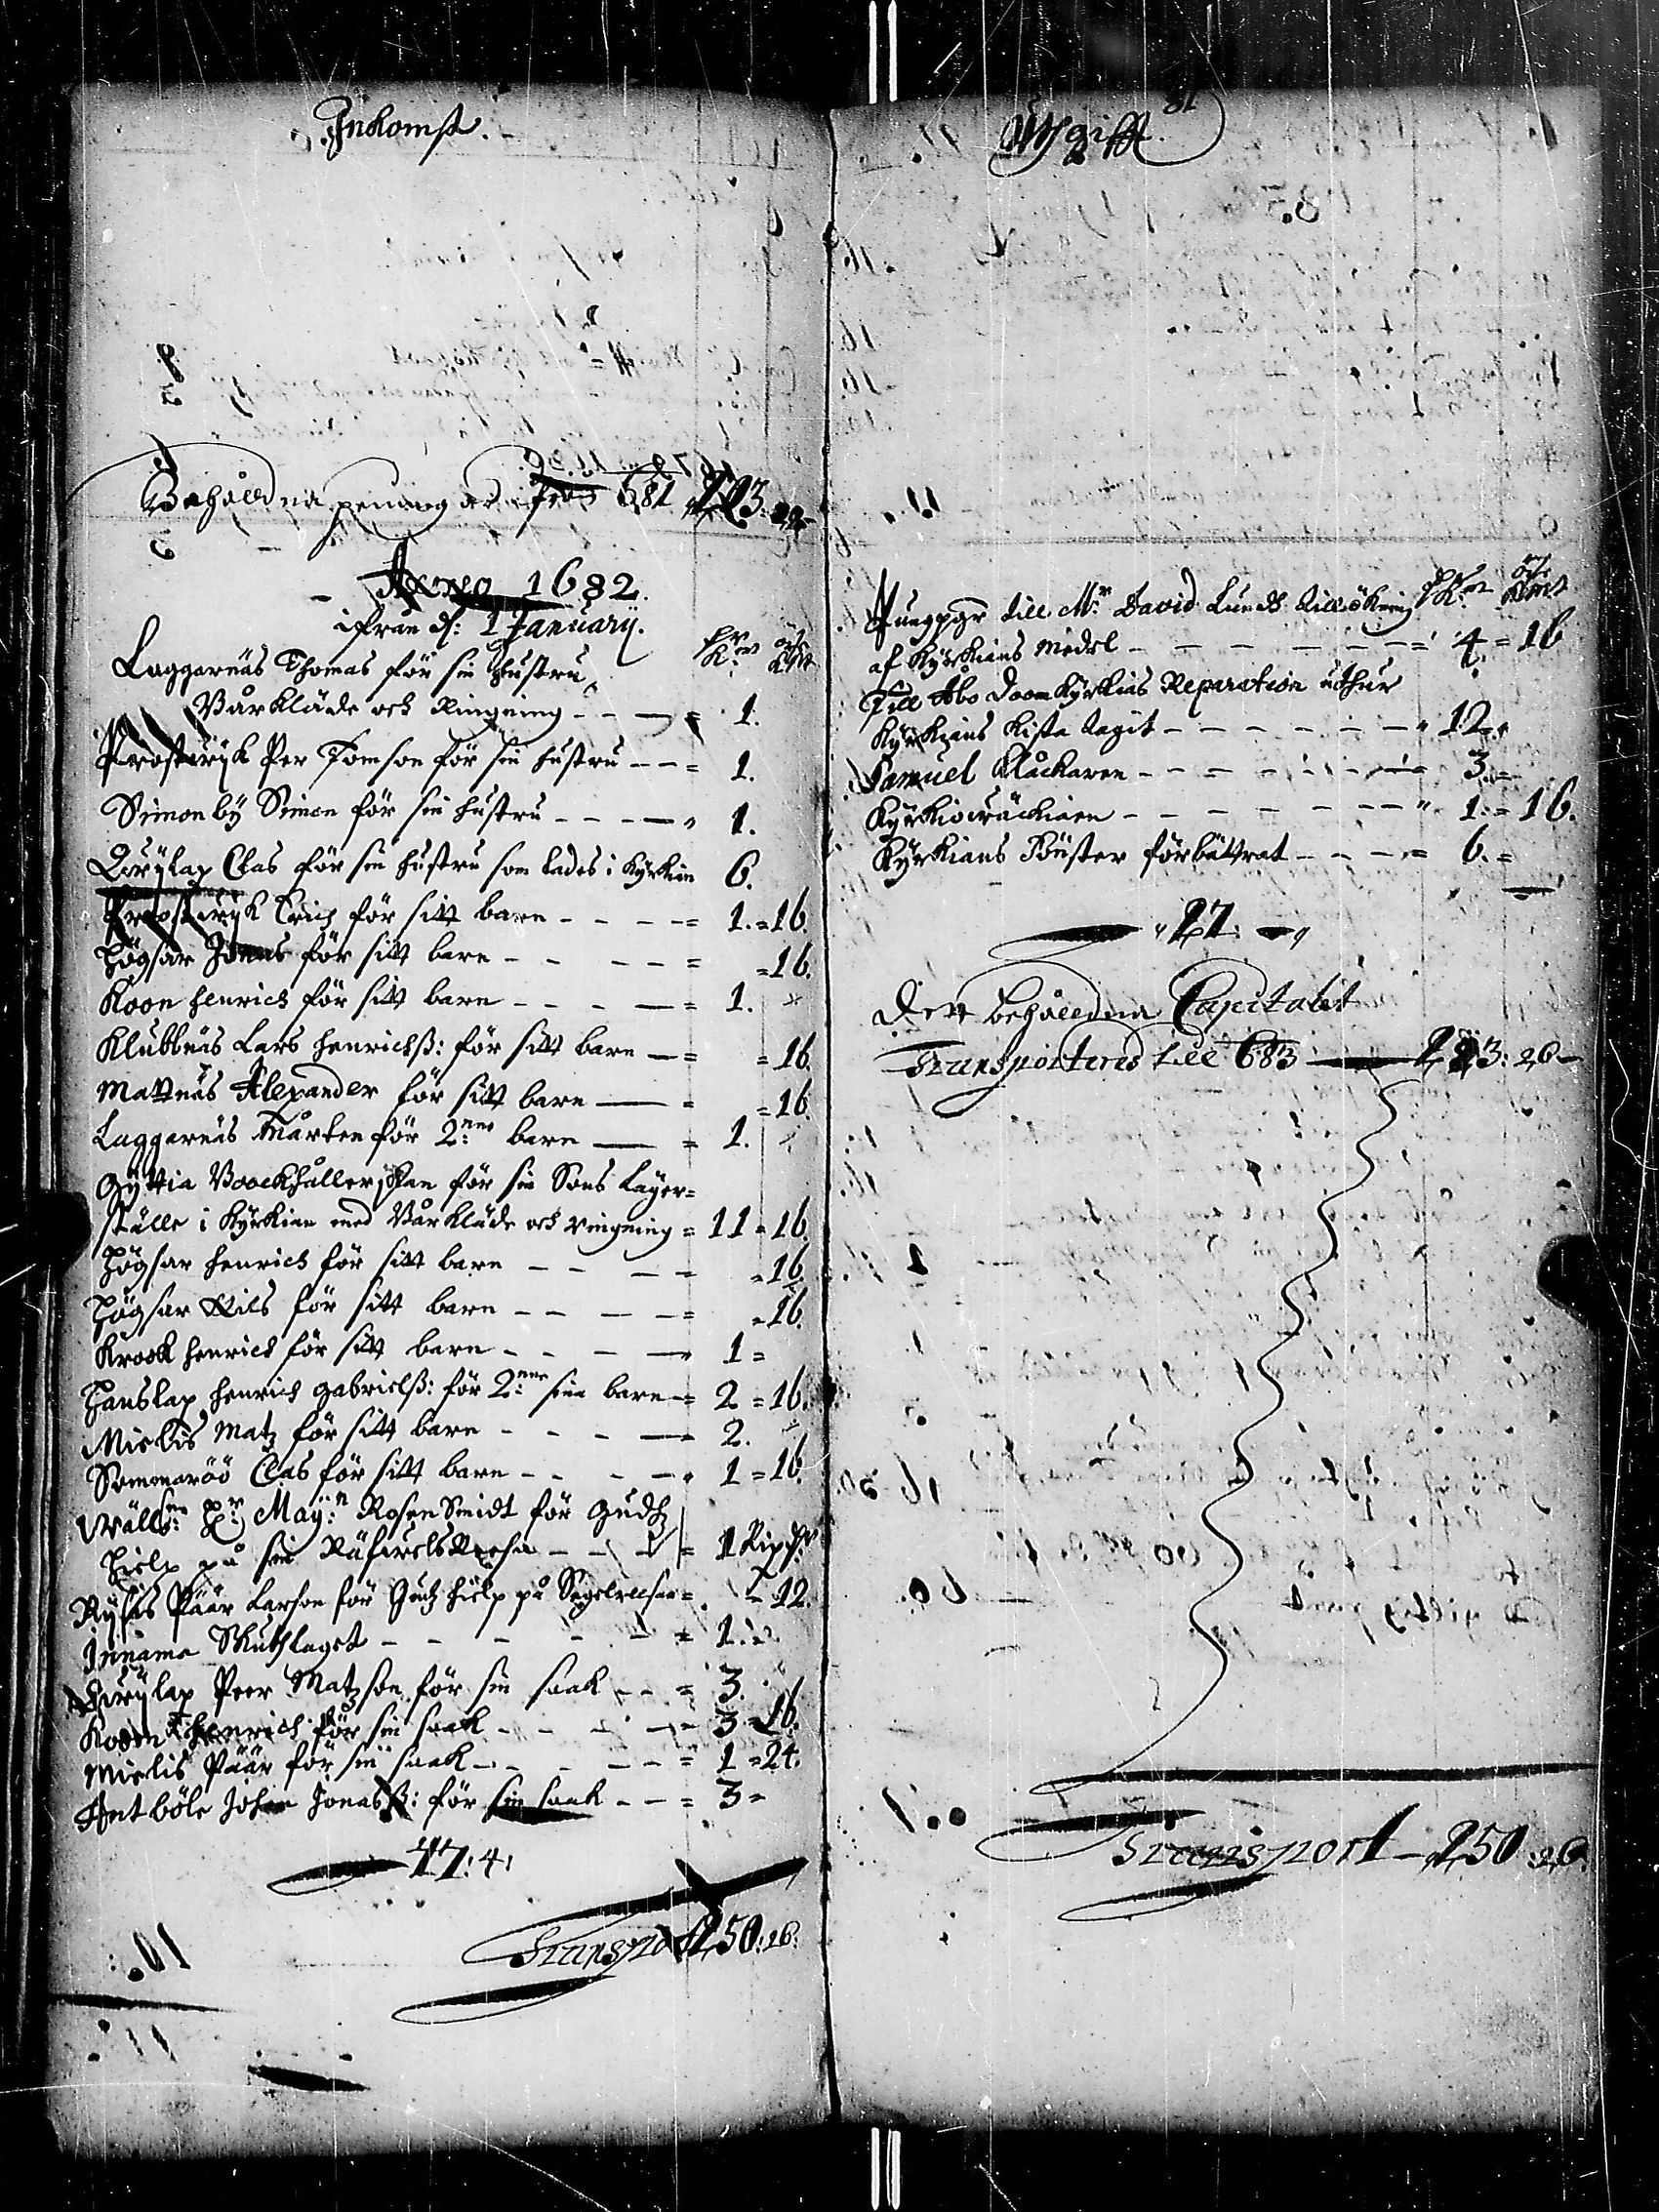 Inkomst.
Behålldna penningar ifrån 681 203:22
Anno 1682.
ifrån d: 1 January.
Laggarnäs Thomas för sin hustru
Vårkläde och Ringning - - - = 1.
Prostvyk Per Tomson för sin hustru - - = 1.
Simonby Simon för sin hustru - - - 1.
Clas för sin hustru som lades i Kyrkian 6.
Erich för sitt barn - - - - = 1. = 16.
Högsar Jonas för sitt barn - - - - = = 16.
Koon Henrich för sitt barn - - - - = 1.
Klubbnäs Lars Henrichß: för sitt barn - = = 16.
Mattnäs Alexander för sitt barn - = = 16.
Laggarnäs Mårten för 2:nne barn - = 1.
Gyttia för sin Sons Läger=
ställe i Kyrkian med Vårkläde och ringning = 11 = 16.
Högsar Henrich för sitt barn - - - - = 16.
Högsar Nils för sitt barn - - - - = = 16.
Krook Henrich för sitt barn - - - - 1 =
Hanslax Henrich Gabrielß: för 2:nne sina barn = 2 = 16.
Mielis Matz för sitt barn - - - - 2.
Sommaröö Clas för sitt barn - - - - 1 = 16.
Wälb:ne H:r May:n RosenSmidt för Gudz
hielp på sin - - - = 1 Rixd:r
Päär Larson för Gudz hielp på Segelreesan = = 12.
Innama Skuthlaget - - - - - = 1.
Peer Matzson för sin saak - - = 3.
Koon Henrich för sin saak - - - - 3 = 16.
Mielis Päär för sin saak - - - - = 1 = 24.
Antböle Johan Jonasß: för sin saak - - = 3 =
47:4:
Transport 250:26:
81
Uthgifft.
till M:r David Lunds
af Kyrkians Medel - - - - - - = 4 = 16
Till Åbo Doomkyrkias Reparation uthur
Kyrkians Kista tagit - - - - - - 12.
Samuel Klåckaren - - - - - - 3. =
Kyrkiowäcktaren - - - - - - 1: = 16.
Kyrkians Fönster förbättrat - - - = 6. =
27:
Dett behålldna Capitalet
Transporteres till 683 223:26
Transport - 250:26.